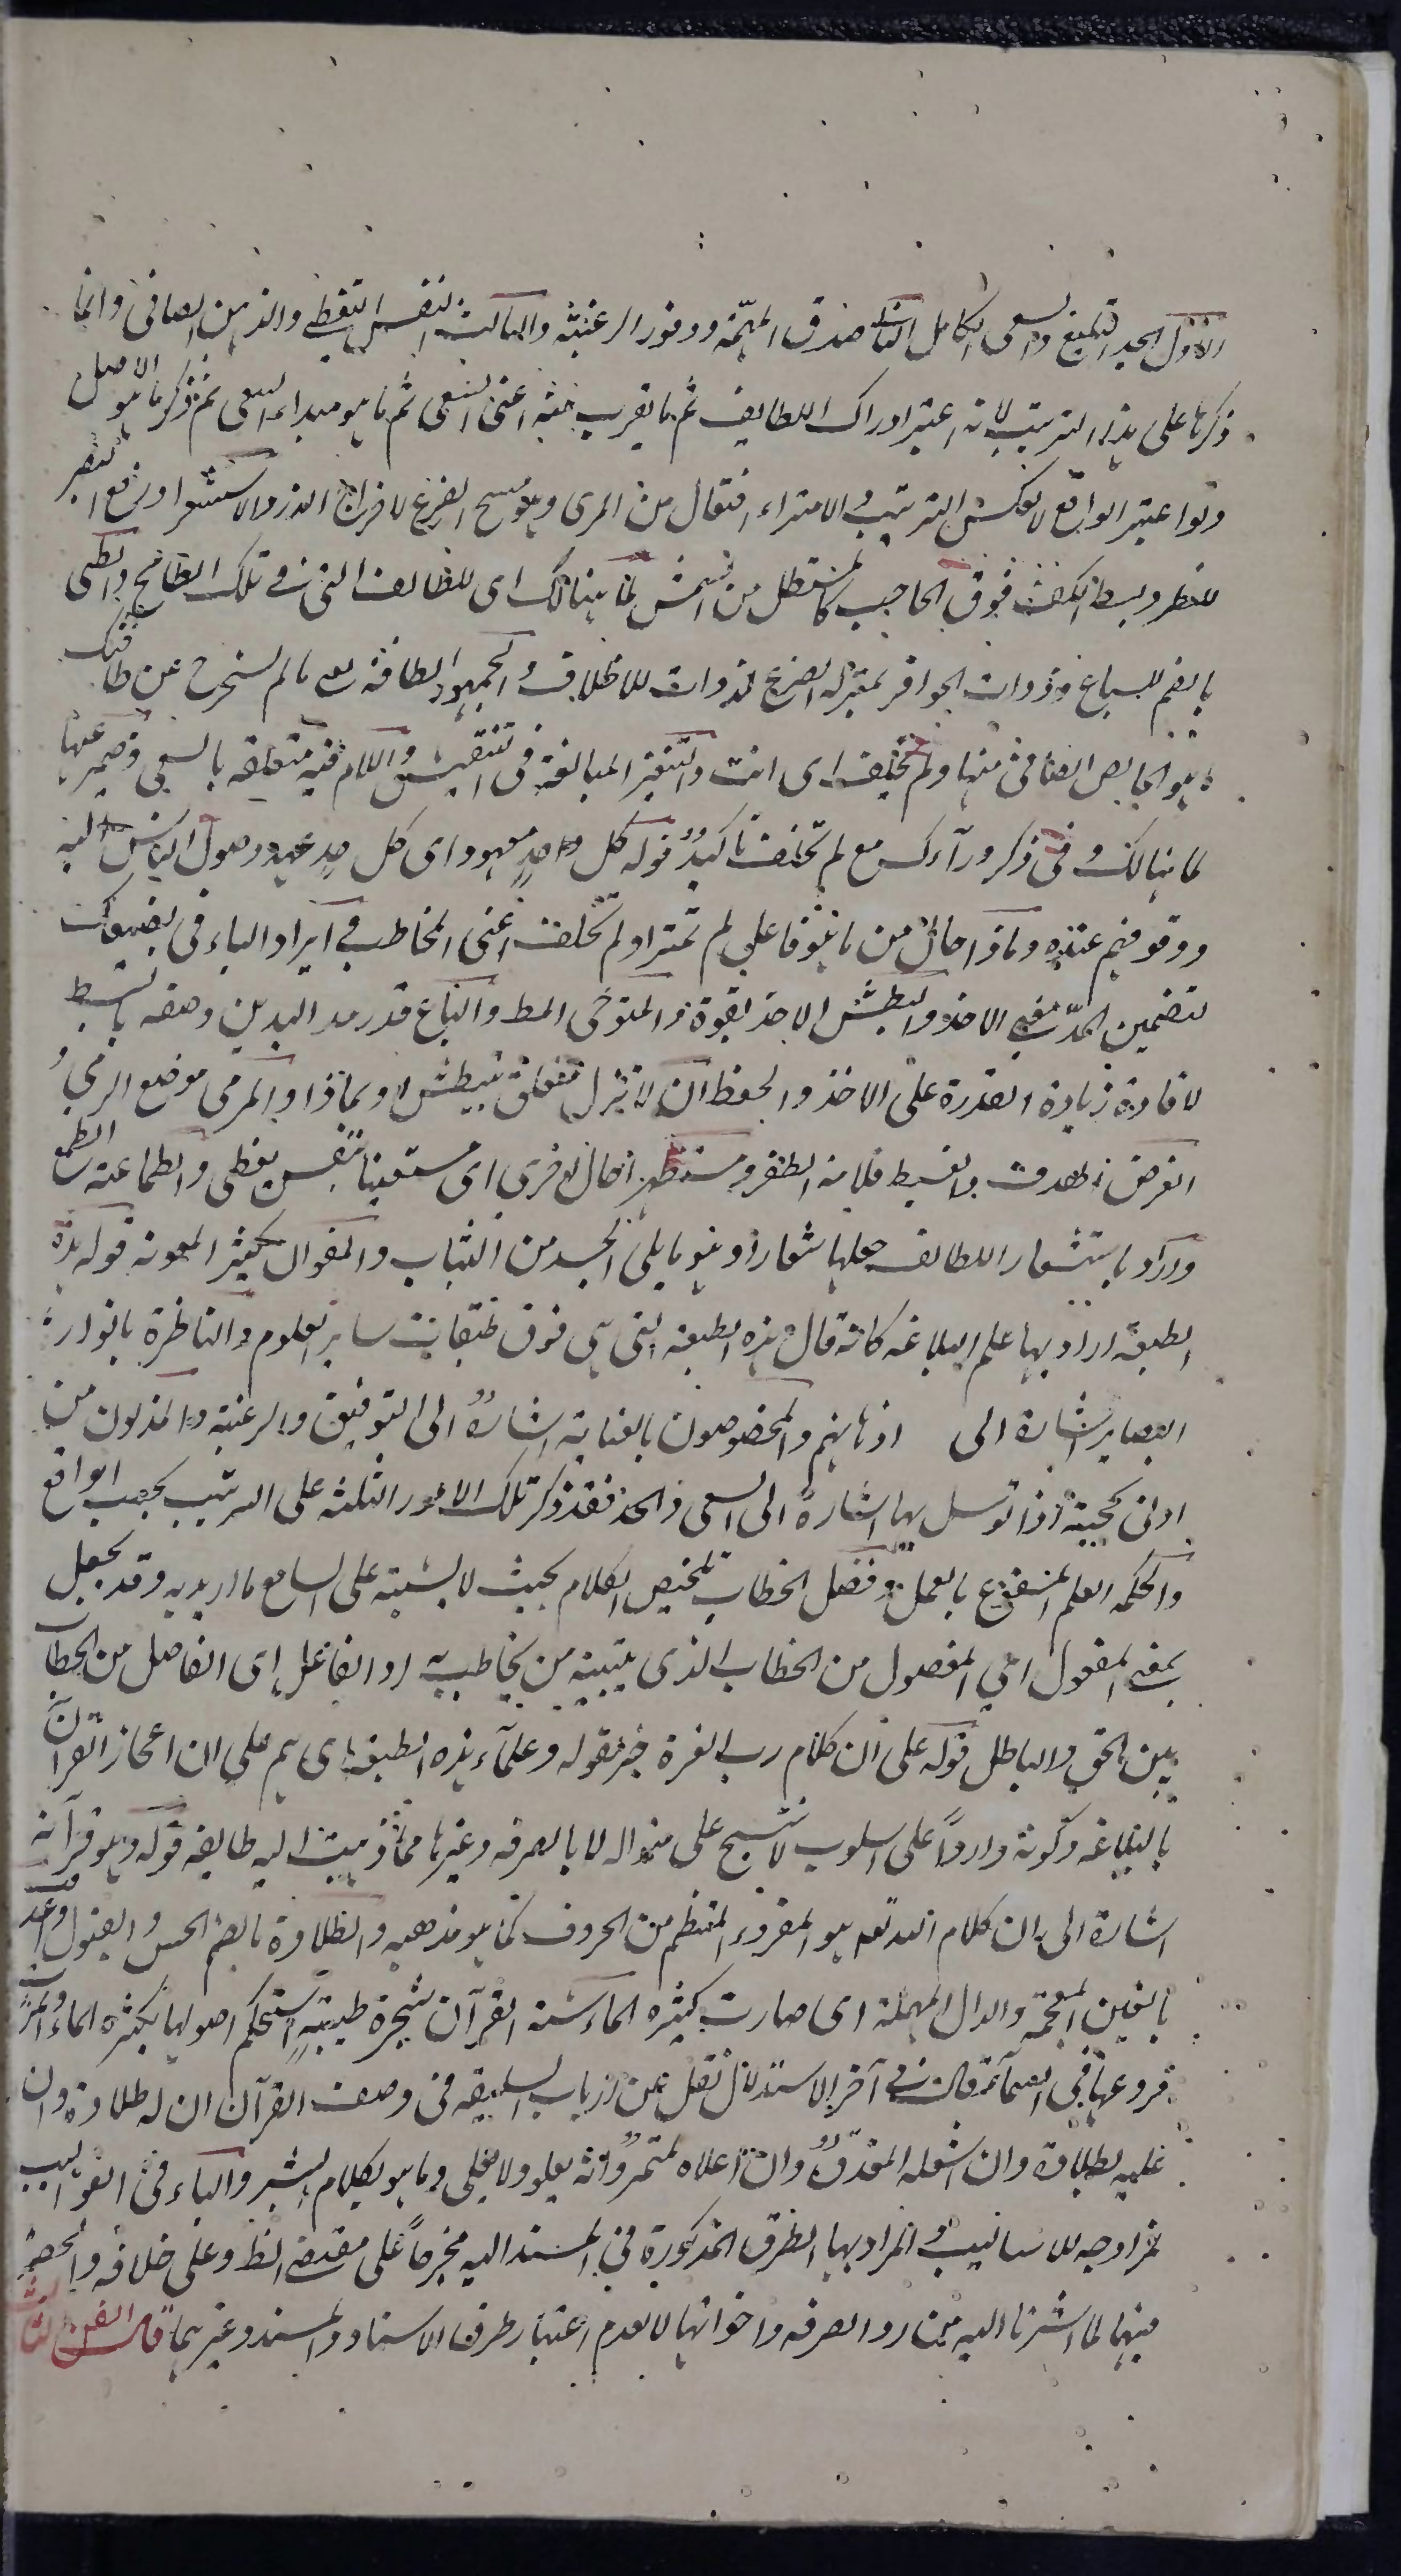 الاول الجد البليغ والسعى الكامل الثانى صدق الهمة ووفور الرغبة والثالث النفس اليقظى والذهن الصافى وانما
ذكرها على هذا الترتيب لانه اعتبر ادراك اللطايف ثم ما يقرب منه اعنى السعى ثم ما هو مبداء السعى ثم ذكر ما هو الاصل
ولو اعتبر الواقع لانعكس الترتيب والامتراء افتعال من المرى وهو مسح الضرع لاخراج الدر والاستشراف رفع البصر
للنظر وبسط الكف فوق الحاجب كالمستظل من الشمس لما هنالك اى للطائف التى فى تلك والطبى
بالضم للسباع وذوات الحوافر بمنزلة الضرع لذوات الاظلاف والجهود الطاقة اى ما لم يستخرج عن طاقتك
هو الخالص الصافى منها ولم تخلف اى انت والتنقير المبالغة فى التفتيش واللام فيه متعلقة بالسعى وضمير عنها
لما هنالك وفى ذكر وراءك مع لم تخلف تاكيد قوله كل حد معهود اى كل حد عهد وصول الناس اليه
ووقوفهم عنده وماذا حال من ما عطفا على لم تمتر او لم تخلف اعنى المخاطب فى ايراد الباء فى
لتضمين المد معنى الاخذ والبطش الاخذ بقوة والمتوخى والباع قدر مد اليدين وصفه بالبسط
لافادة زيادة القدرة على الاخذ والحفظ ان لا تزل متعلق بتبطش او بماذا والمرمى موضع الرمى
الغرض الهدف مستظهرا حال اخرى اى مستعينا بنفس يقظى والطماعة الطمع
واراد باستشعار اللطايف جعلها شعارا وهو ما يلى الجسد من الثياب والمعوان كثير المعونة قوله هذه
الطبقة اراد بها علم البلاغة كانه قال هذه الطبقة التى هى فوق طبقات ساير العلوم والناظرة بانوار
البصاير اشارة الى اذهانهم والمخصوصون بالعناية اشارة الى التوفيق والرغبة والمدلون من
ادلى بحجته اذا توسل بها اشارة الى السعى والجد فقد ذكر تلك الامور الثلثة على الترتيب بحسب الواقع
والحكمة العلم المشفوع بالعمل وفصل الخطاب تلخيص الكلام بحيث لا يشتبه على السامع ما اريد به وقد يجعل
بمعنى المفعول اى المفصول من الخطاب الذى يتبينه من يخاطب به او الفاعل اى الفاصل من الخطاب
بين الحق والباطل قوله على ان كلام رب العزة خبر لقوله وعلماء هذه الطبقة اى هم على ان اعجاز القرآن
بالبلاغة وكونه واردا على اسلوب لا ينسج على منواله لا بالصرفه وغيرها مما ذهبت اليه طايفة قوله وهو قرآنه
اشارة الى ان كلام الله تعالى هو المقروء المنتظم من الحروف كما هو مذهبه والطلاوة بالضم الحسن والقبول واغدقت
بالغين المعجمة والدال المهملة اى صارت كثيرة الماء شبه القرآن بشجرة طيبة استحكم اصولها بكثرة الماء وامتد
فروعها فى السماء قال فى آخر الاستدلال نقل عن ارباب السليقة فى وصف القرآن ان له لحلاوة وان
عليه لطلاوة وان اسفله لمغدق وان اعلاه لمثمر وانه يعلو ولا يعلى وما هو بكلام البشر والباء فى
للاساليب والمراد بها الطرق المذكورة فى المسند اليه مخرجا على مقتضى الظاهر وعلى خلافه والحصر
فيها لما اشرنا اليه من رد الصرفه واخواتها لا لعدم اعتبار طرف الاسناد والمسند وغيرهما قال الفن الثالث